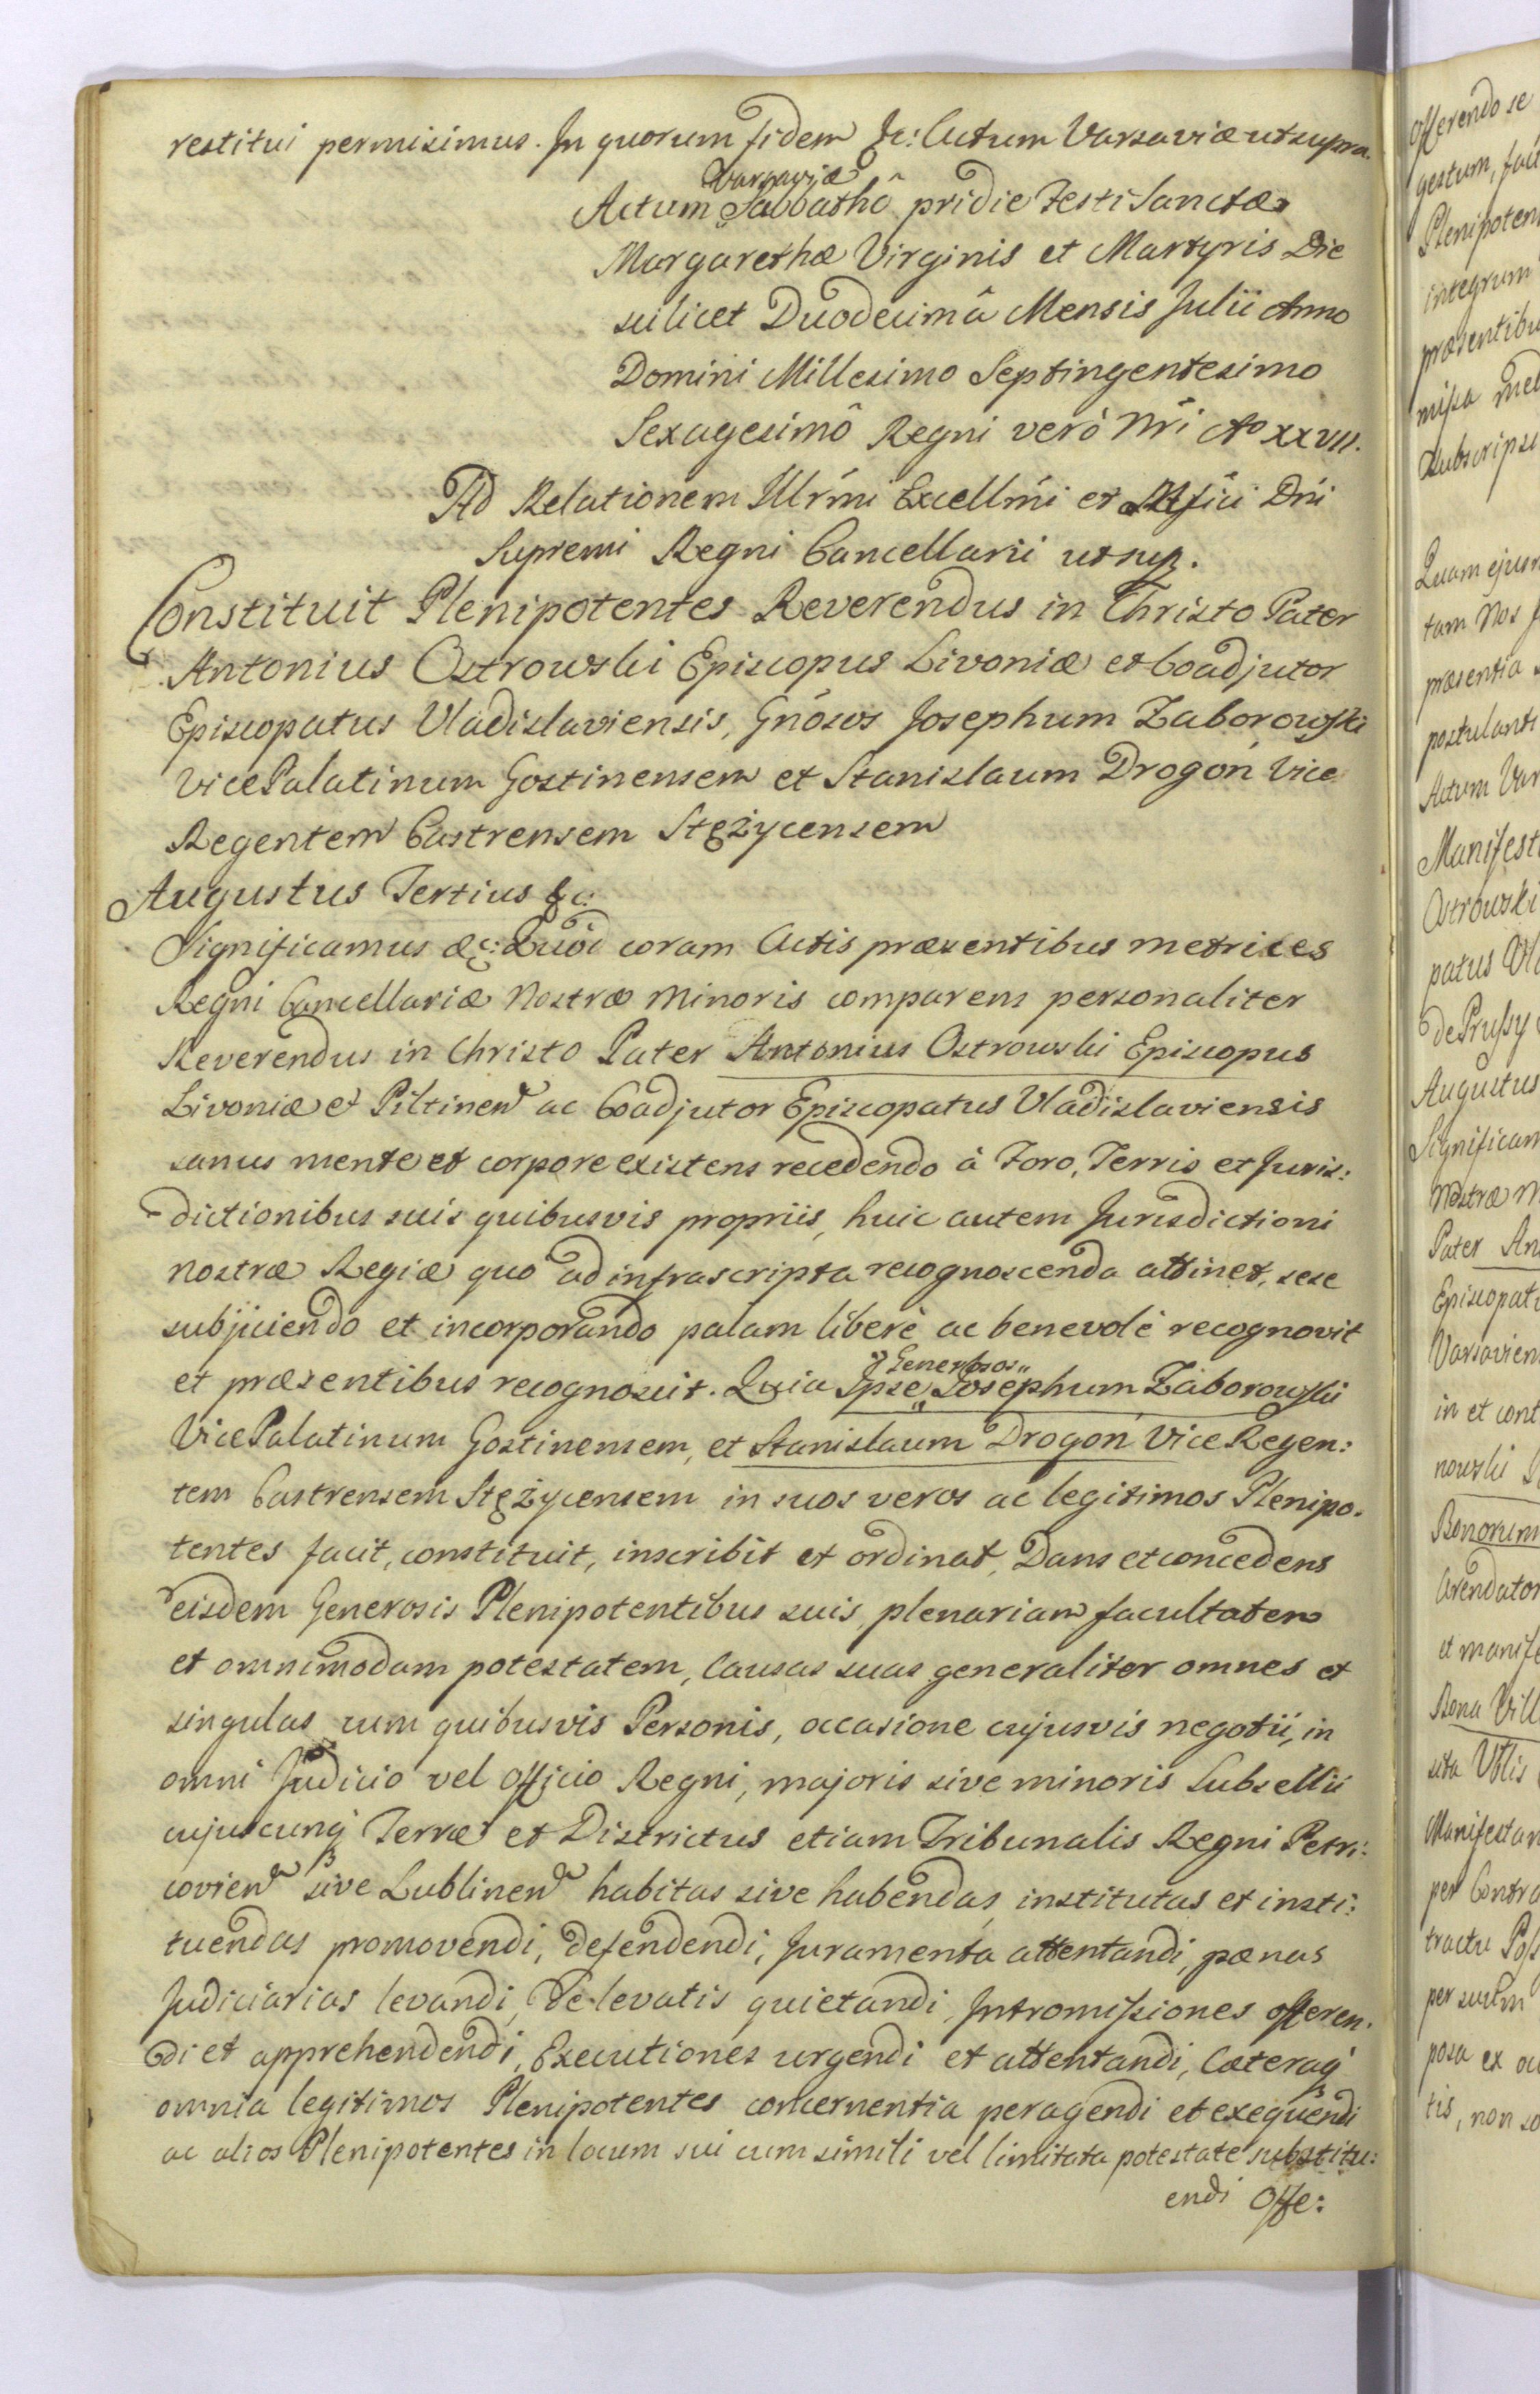 restitui permisimus. In quorum fidem &c: Actum Varsaviæ ut supra.
Varsaviæ
Actum Sabbathô pridie Festi Sanctæ
Margarethæ Virginis et Martyris Die
scilicet Duodecimâ Mensis Julii Anno
Domini Millesimo Septingentesimo
Sexagesimô Regni verò Nri Ao XXVII.
Ad Relationem Illrmi Excellmi et Mfici Dni
Supremi Regni Cancellarii ut sup.
Constituit Plenipotentes Reverendus in Christo Pater
Antonius Ostrowski Episcopus Livoniæ et Coadjutor
Episcopatus Vladislaviensis, Gnosos Josephum Zaborowski
Vice Palatinum Gostinensem et Stanislaum Drogoń Vice
Regentem Castrensem Stężycensem
Augustus Tertius &c:
Significamus &c: Quòd coram Actis præsentibus metrices
Regni Cancellariæ Nostræ Minoris comparens personaliter
Reverendus in Christo Pater Antonius Ostrowski Episcopus
Livoniæ et Piltinen ac Coadjutor Episcopatus Vladislaviensis
sanus mente et corpore existens recedendo à Foro, Terris et Juris:
dictionibus suis quibusvis propriis, huic autem Jurisdictioni
nostræ Regiæ quo ad infrascripta recognoscenda attinet, sese
subjiciendo et incorporando palam liberè ac benevolè recognovit
et præsentibus recognoscit. Quia Ipse Josephum Zaborowski
Generosos
Vice Palatinum Gostinensem, et Stanislaum Drogoń Vice Regen:
tem Castrensem Stężycensem in suos veros ac legitimos Plenipo.
tentes facit, constituit, inscribit et ordinat, Dans et concedens
eisdem Generosis Plenipotentibus suis, plenariam facultatem
et omnimodam potestatem, Causas suas generaliter omnes et
singulas cum quibusvis Personis, occasione cujusvis negotii, in
omni Judicio vel Officio Regni, majoris sive minoris Subsellii
cujuscunq Terræ et Districtus etiam Tribunalis Regni Petri:
covien sive Lublinen habitas sive habendas, institutas et insti:
tuendas promovendi, defendendi, Juramenta attentandi, pænas
Judiciarias levandi, de levatis quietandi, Intromissiones offeren.
di et apprehendendi, Executiones urgendi et attentandi, Cæteraq
omnia legitimos Plenipotentes concernentia peragendi et exequendi
ac alios Plenipotentes in locum sui cum simili vel limitata potestate substitu:
endi Offe:
Offerendo se
gestum,
Plenipoten
integrum
præsentibu
missa
Subscripsi
Quam ejusm
tam Nos
præsentia
postulant
Actum Var
Manifest
Ostrowski
patus Vl
de Prussy
Augustus
Significam
Nostræ M
Pater An
Episcopat
Varsavien
in et cont
nowski
Bonorum
Arendator
et manife
Bona Vill
sita
Manifestan
per Contra
tractu Pos
per suum
posa ex oc
tis, non so